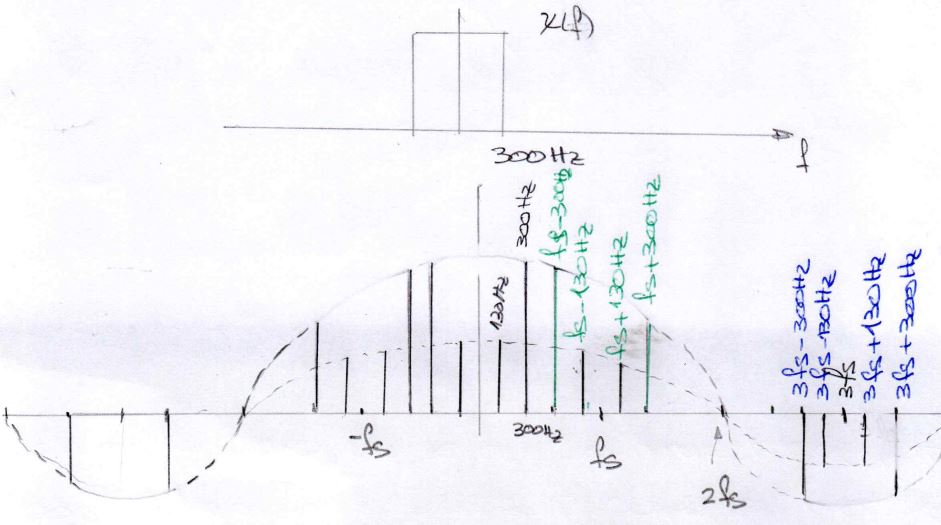 x(f)
300Hz
f
300Hz
fs-300Hz
fs-130Hz
fs+130Hz
fs+300Hz
130Hz
3fs-300Hz
3fs-130Hz
3fs
3fs+130Hz
3fs+300Hz
-fs
300Hz
fs
2fs